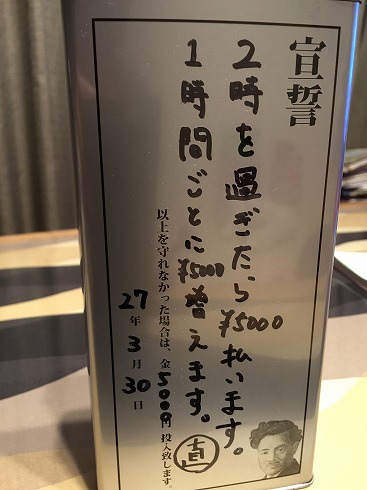 宣誓
2時を過ぎたら¥5000払います。
1時間ごとに¥5000増えます。直
以上を守れなかった場合は、金5000円投入致します。
27年3月30日